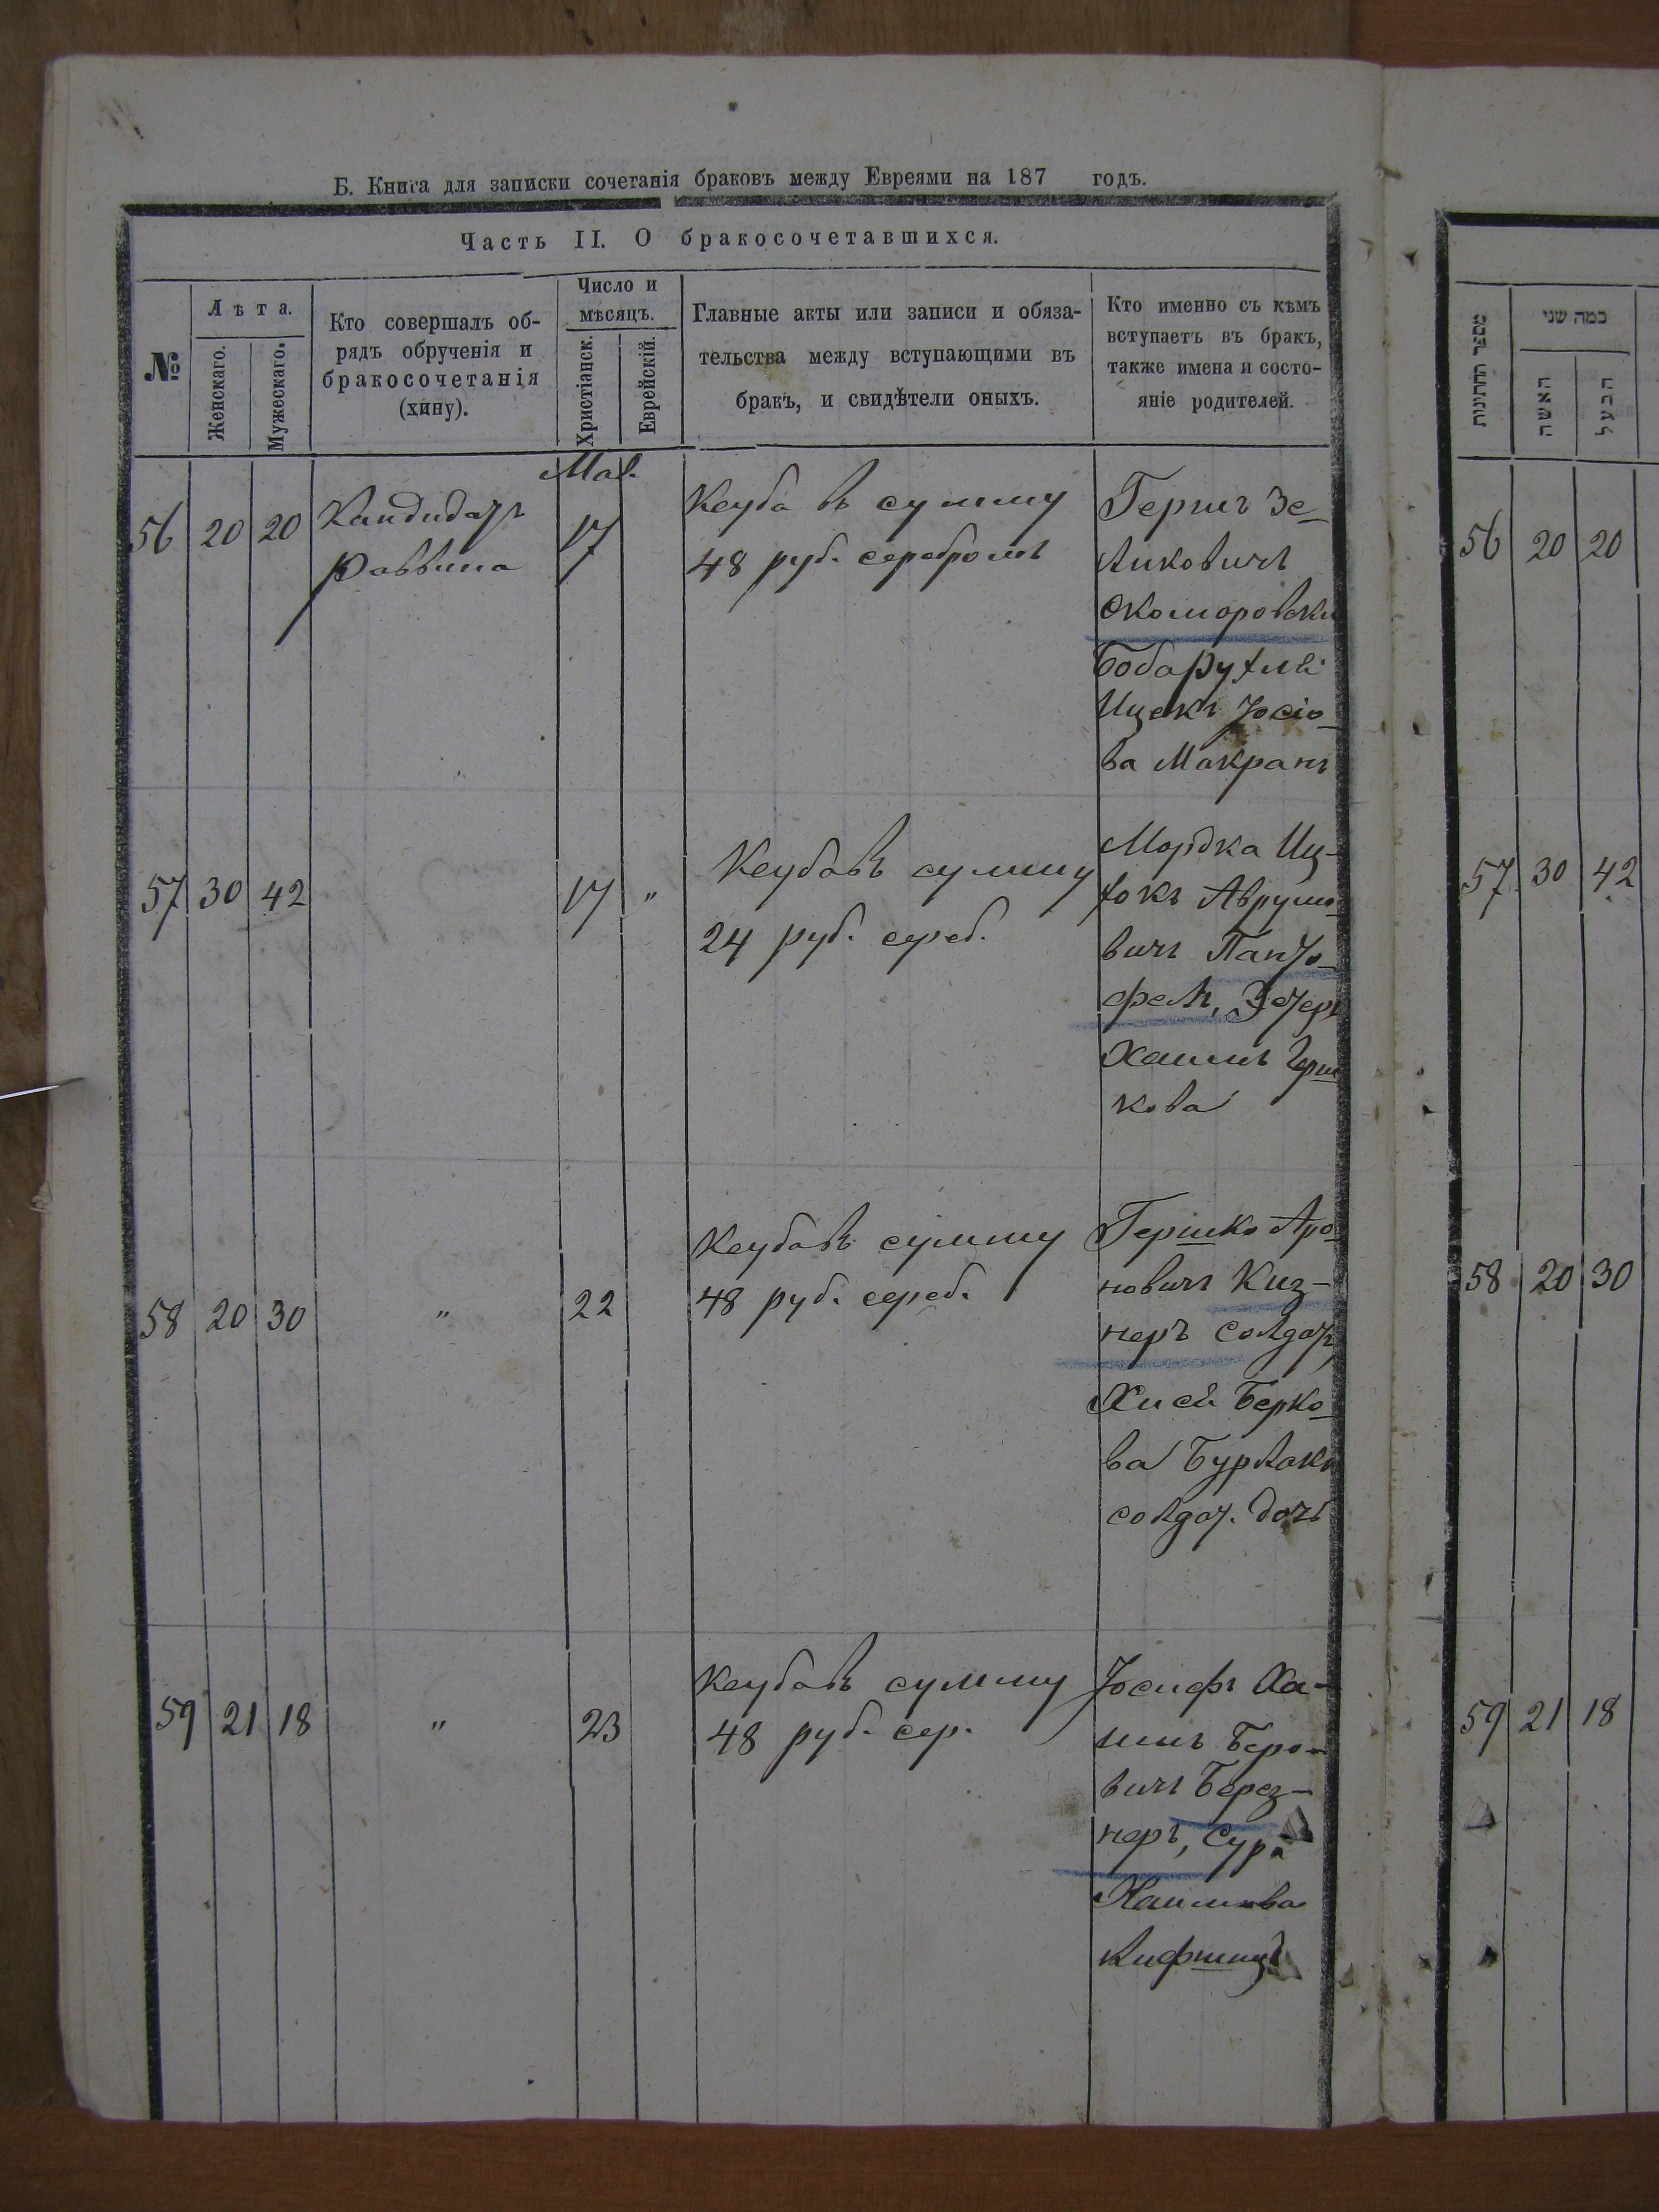 Б. Книга для записки сочетанія браковъ между Евреями на 187 годъ.
Часть II. О бракосочетавшихся.
№
Лѣта.
Женскаго.
Мужескаго.
Кто совершалъ об-
рядъ обрученія и
бракосочетанія
(хину).
Число и
мѣсяцъ.
Христіанск.
Еврейскій.
Главные акты или записи и обяза-
тельства между вступающими въ
бракъ, и свидѣтели оныхъ.
Кто именно съ кѣмъ
вступаетъ въ бракъ,
также имена и состо-
яніе родителей.
Маі.
56 20 20
Кандидатъ
Раввина
17
Кеуба въ сумму
48 руб. серебромъ
Гершъ Зе-
ликовичъ
Скоморовски
Боба
Ицекъ Іосіо-
ва Макранъ
57 30 42
17 „
Кеуба въ сумму
24 руб. сереб.
Мордка Иц-
Аврумо-
вичъ Панто-
фель, Эстеръ
Хаимъ Герш-
кова
58 20 30
„
22
Кеуба въ сумму
48 руб. сереб.
Гершко Аро-
новичъ Киз-
неръ солдатъ,
Хисей Берко-
ва Бурлакъ
солдат. дочь
59 21 18
„
23
Кеуба въ сумму
48 руб. сер.
Іосифъ Ха-
имъ Беро-
вичъ Берез-
неръ, Сура
Хаимова
Лифшицъ
מספר החתונות
כמה שני
האשה
הבעל
56 20 20
57 30 42
58 20 30
59 21 18